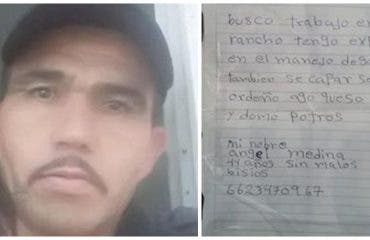 busco trabajo en
rancho tengo exp
en el manejo de g
tambien se capar se
ordeño ago queso
y domo potros
mi nobre
angel medina
44 años sin malos
bisios
6623470967